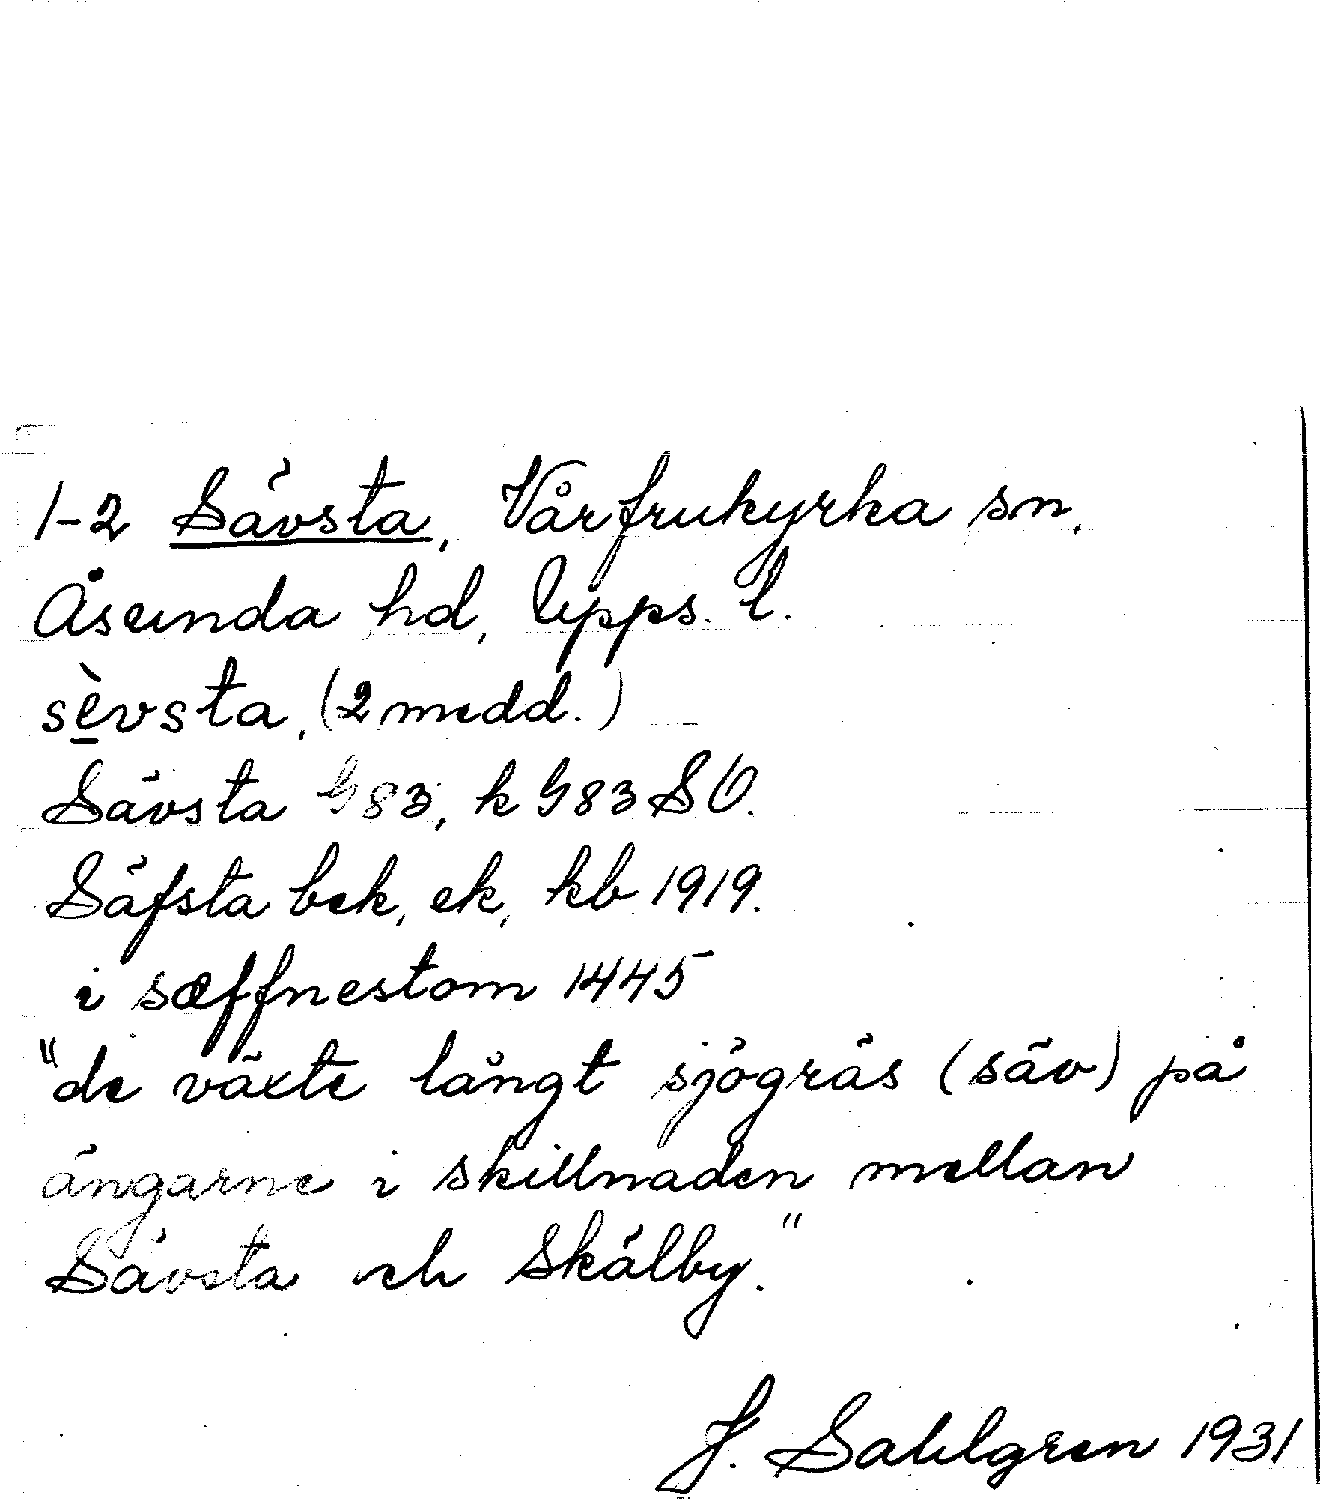 1-2 Sävsta, Vårfrukyrka sn,
Åsunda hd, Upps. l.
sèvsta, (2 medd.)
Sävsta G83, k G83 SV.
Säfsta bek, ek, kb 1919.
i sæffnestom 1445
"de växte långt sjögräs (säv) på
ängarne i skillnaden mellan
Sävsta och Skälby."
J. Sahlgren 1931